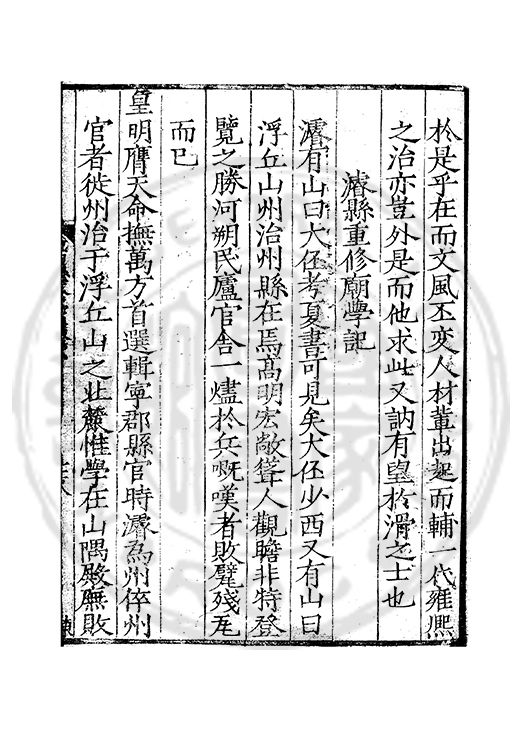 於是乎在而文風丕变人材輩出起而輔一代雍熈
之治亦豈外是而他求此又訥有望於滑之士也
濬縣重修廟學記
濬有山曰大伾考夏書可見矣大伾少西又有山曰
浮丘山州治州縣在焉髙明宏敞聳人觀瞻非特登
覽之勝河朔民廬官舎一燼於兵嘅嘆者敗甓殘瓦
而已
皇明膺天命撫萬方首選輯寧郡縣官時濬為州倅州
官者徙州治于浮丘山之北麓惟學在山隅殿廡敗